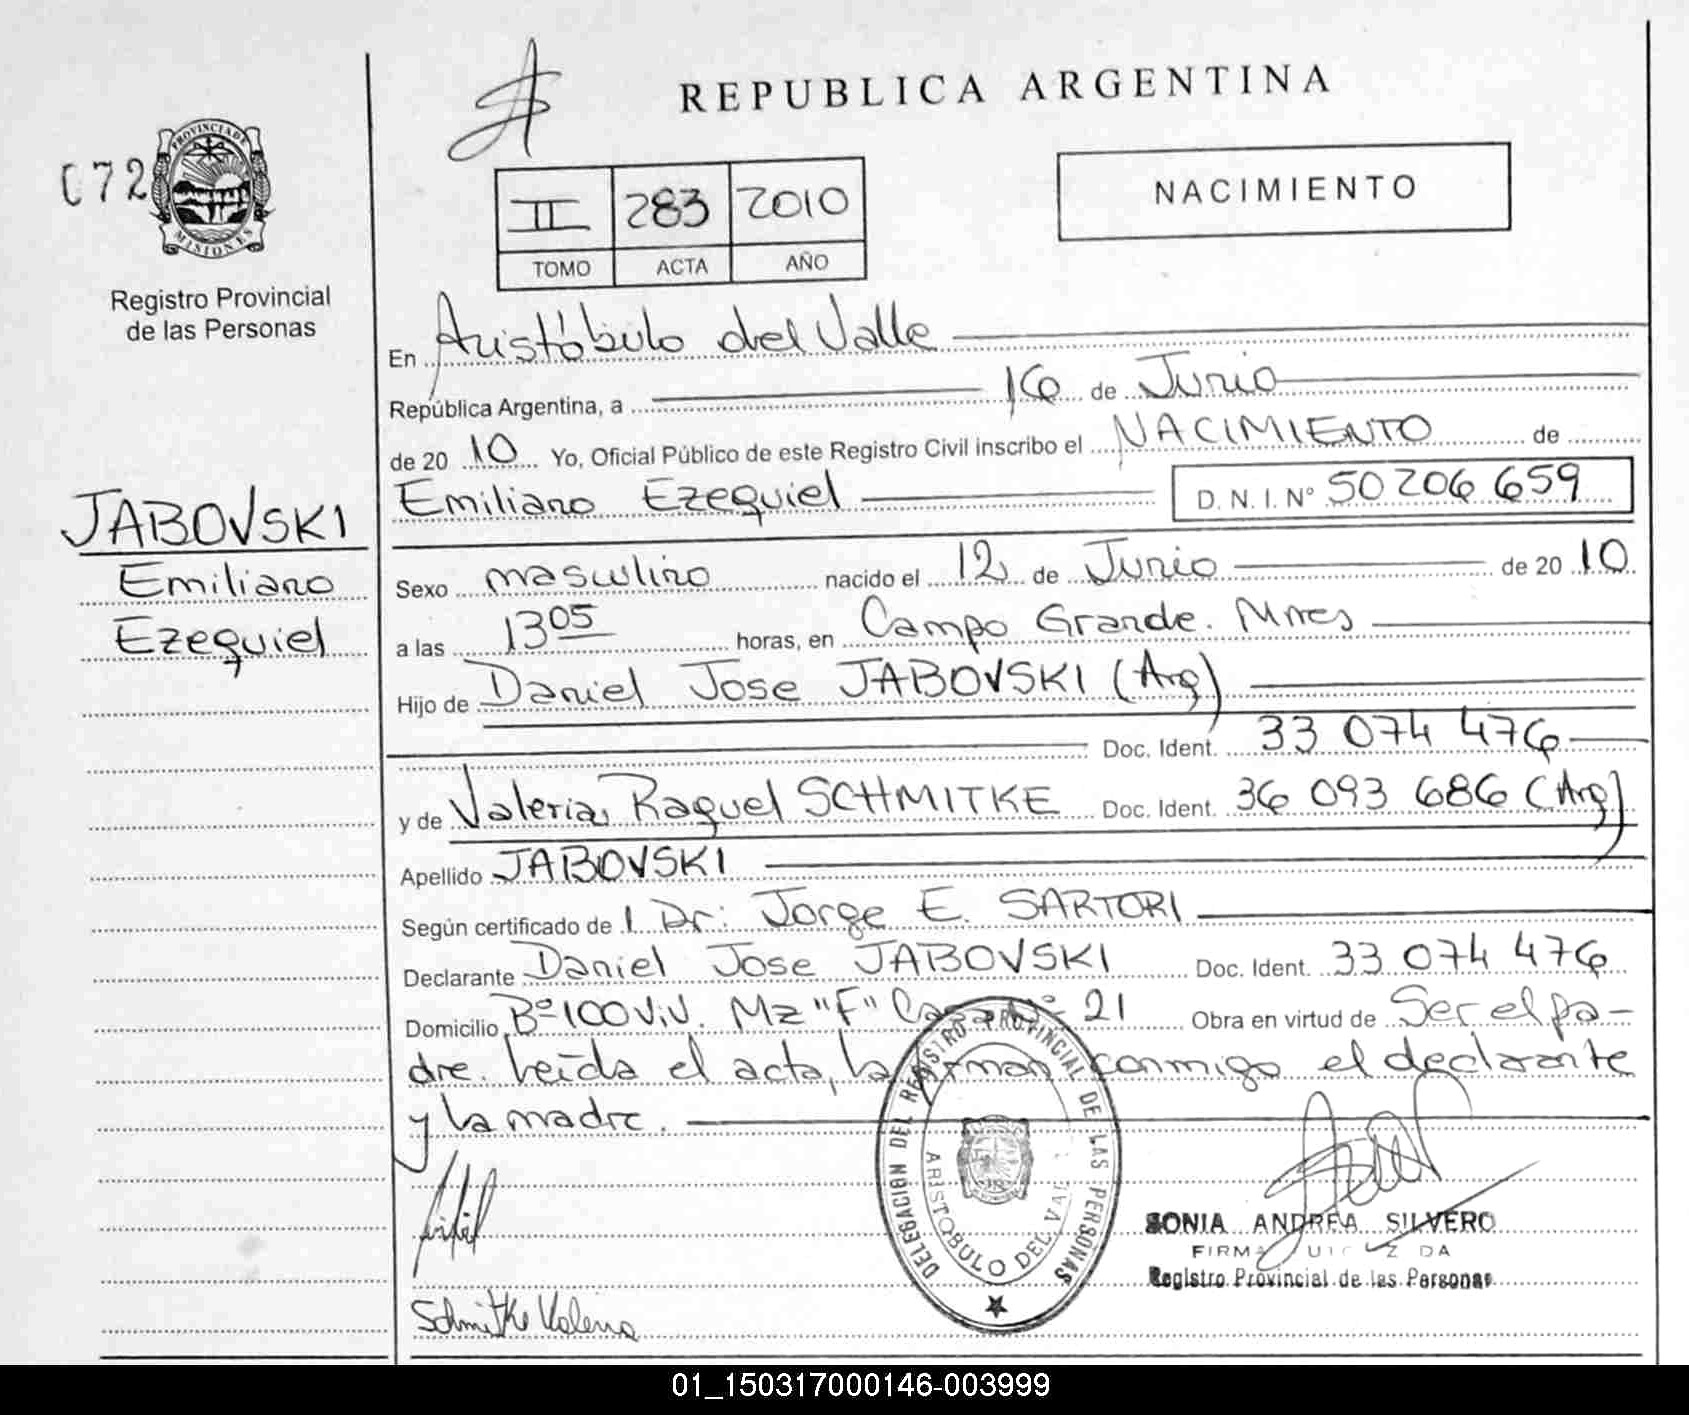 REPUBLICA ARGENTINA
072
PROVINCIA DE
MISIONES
Registro Provincial
de las Personas
II 283 2010
TOMO ACTA AÑO
NACIMIENTO
En Aristóbulo del Valle
República Argentina, a 16 de Junio
de 20 10 Yo, Oficial Público de este Registro Civil inscribo el NACIMIENTO de
Emiliano Ezequiel D. N. I. N° 50 206 659
JABOVSKI
Emiliano
Ezequiel
Sexo masculino nacido el 12 de Junio de 20 10
a las 13 05 horas, en Campo Grande. Mnes
Hijo de Daniel Jose JABOVSKI (Arg)
Doc. Ident. 33 074 476
y de Valeria Raquel SCHMITKE Doc. Ident. 36 093 686 (Arg)
Apellido JABOVSKI
Según certificado de 1 Dr: Jorge E. SARTORI
Declarante Daniel Jose JABOVSKI Doc. Ident. 33 074 476
Domicilio B° 100 Viv. Mz "F" Casa N° 21 Obra en virtud de Ser el pa-
dre. Leída el acta, la firman conmigo el declarante
y la madre.
DELEGACION DEL REGISTRO PROVINCIAL DE LAS PERSONAS
ARISTOBULO DEL VALLE
SONIA ANDREA SILVERO
Registro Provincial de las Personas
Schmitke Valeria
01_150317000146-003999